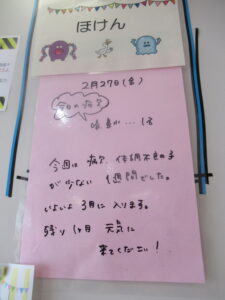 ほけん
2月27日(金)
今日の病欠
咳鼻水…1名
今週は 病欠、体調不良の子
が少ない 1週間でした。
いよいよ 3月に 入ります。
残り 1ヶ月 元気に
来てください!